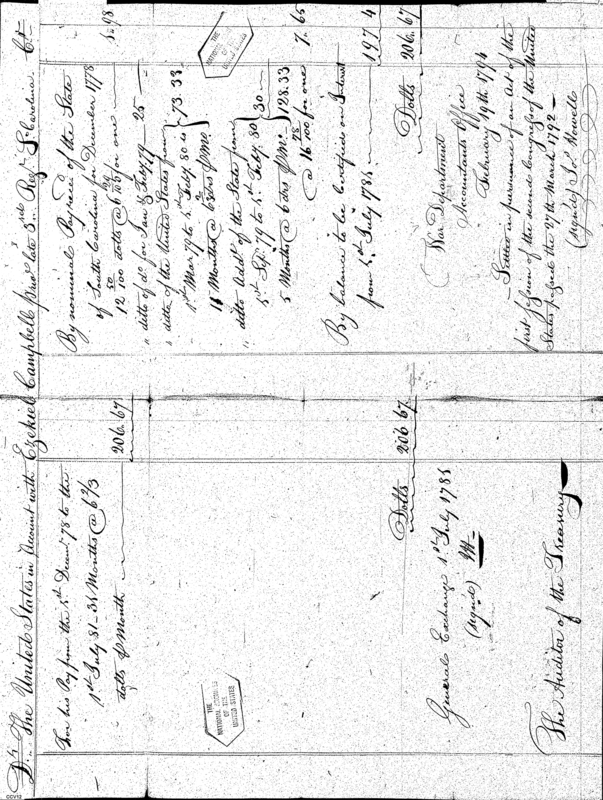 Dr. The United States in Account with Ezekiel Campbell late 3rd Regt So Carolina. Cr.
For his Pay from the 1st Decemr. 78 to the
1st July 81 - 31 Months @ 6 2/3
dolls  Month 206. 67
Dolls 206 67
General Exchange 1st July 1785
(signed)
The Auditor of the Treasury
THE NATIONAL ARCHIVES OF THE UNITED STATES
By nominal Pay recd of the State
of South Carolina for December 1778
12 50/100 dolls @ 6 for one 1. 98
" ditto of do for Jan & Feby 79 25
ditto of the United States from
1st Mar 79 to 1st Feby. 80 is 73 33
11 Months @ 6 2/3 Mo.
" ditto Addl. of the State from
1st Sept. 79 to 1st Feby. 80 30
5 Months @ 6 Mo. 128.33
@ 16 for one 7. 65
By balance to be Certified on Interest
from 1st July 1785 197 4
Dolls 206. 67
War Department
Accountants Office
February 19th 1794
Settled in pursuance of an Act of the
first session of the second Congress of the United
States passed the 27th March 1792
(signed) Jo. Howell
THE NATIONAL ARCHIVES OF THE UNITED STATES